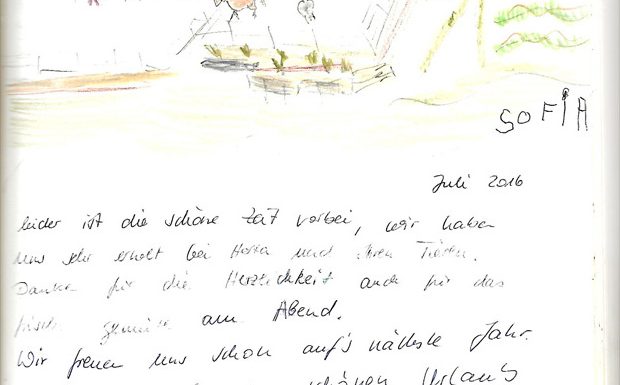 SOFiA
Juli 2016
leider ist die schöne Zeit vorbei, wir haben
uns sehr erholt bei und ihren Tieren.
Danke für die Herzlichkeit auch für das
frische gemüse am Abend.
Wir freuen uns schon auf's nächste Jahr.
schönen Urlaub